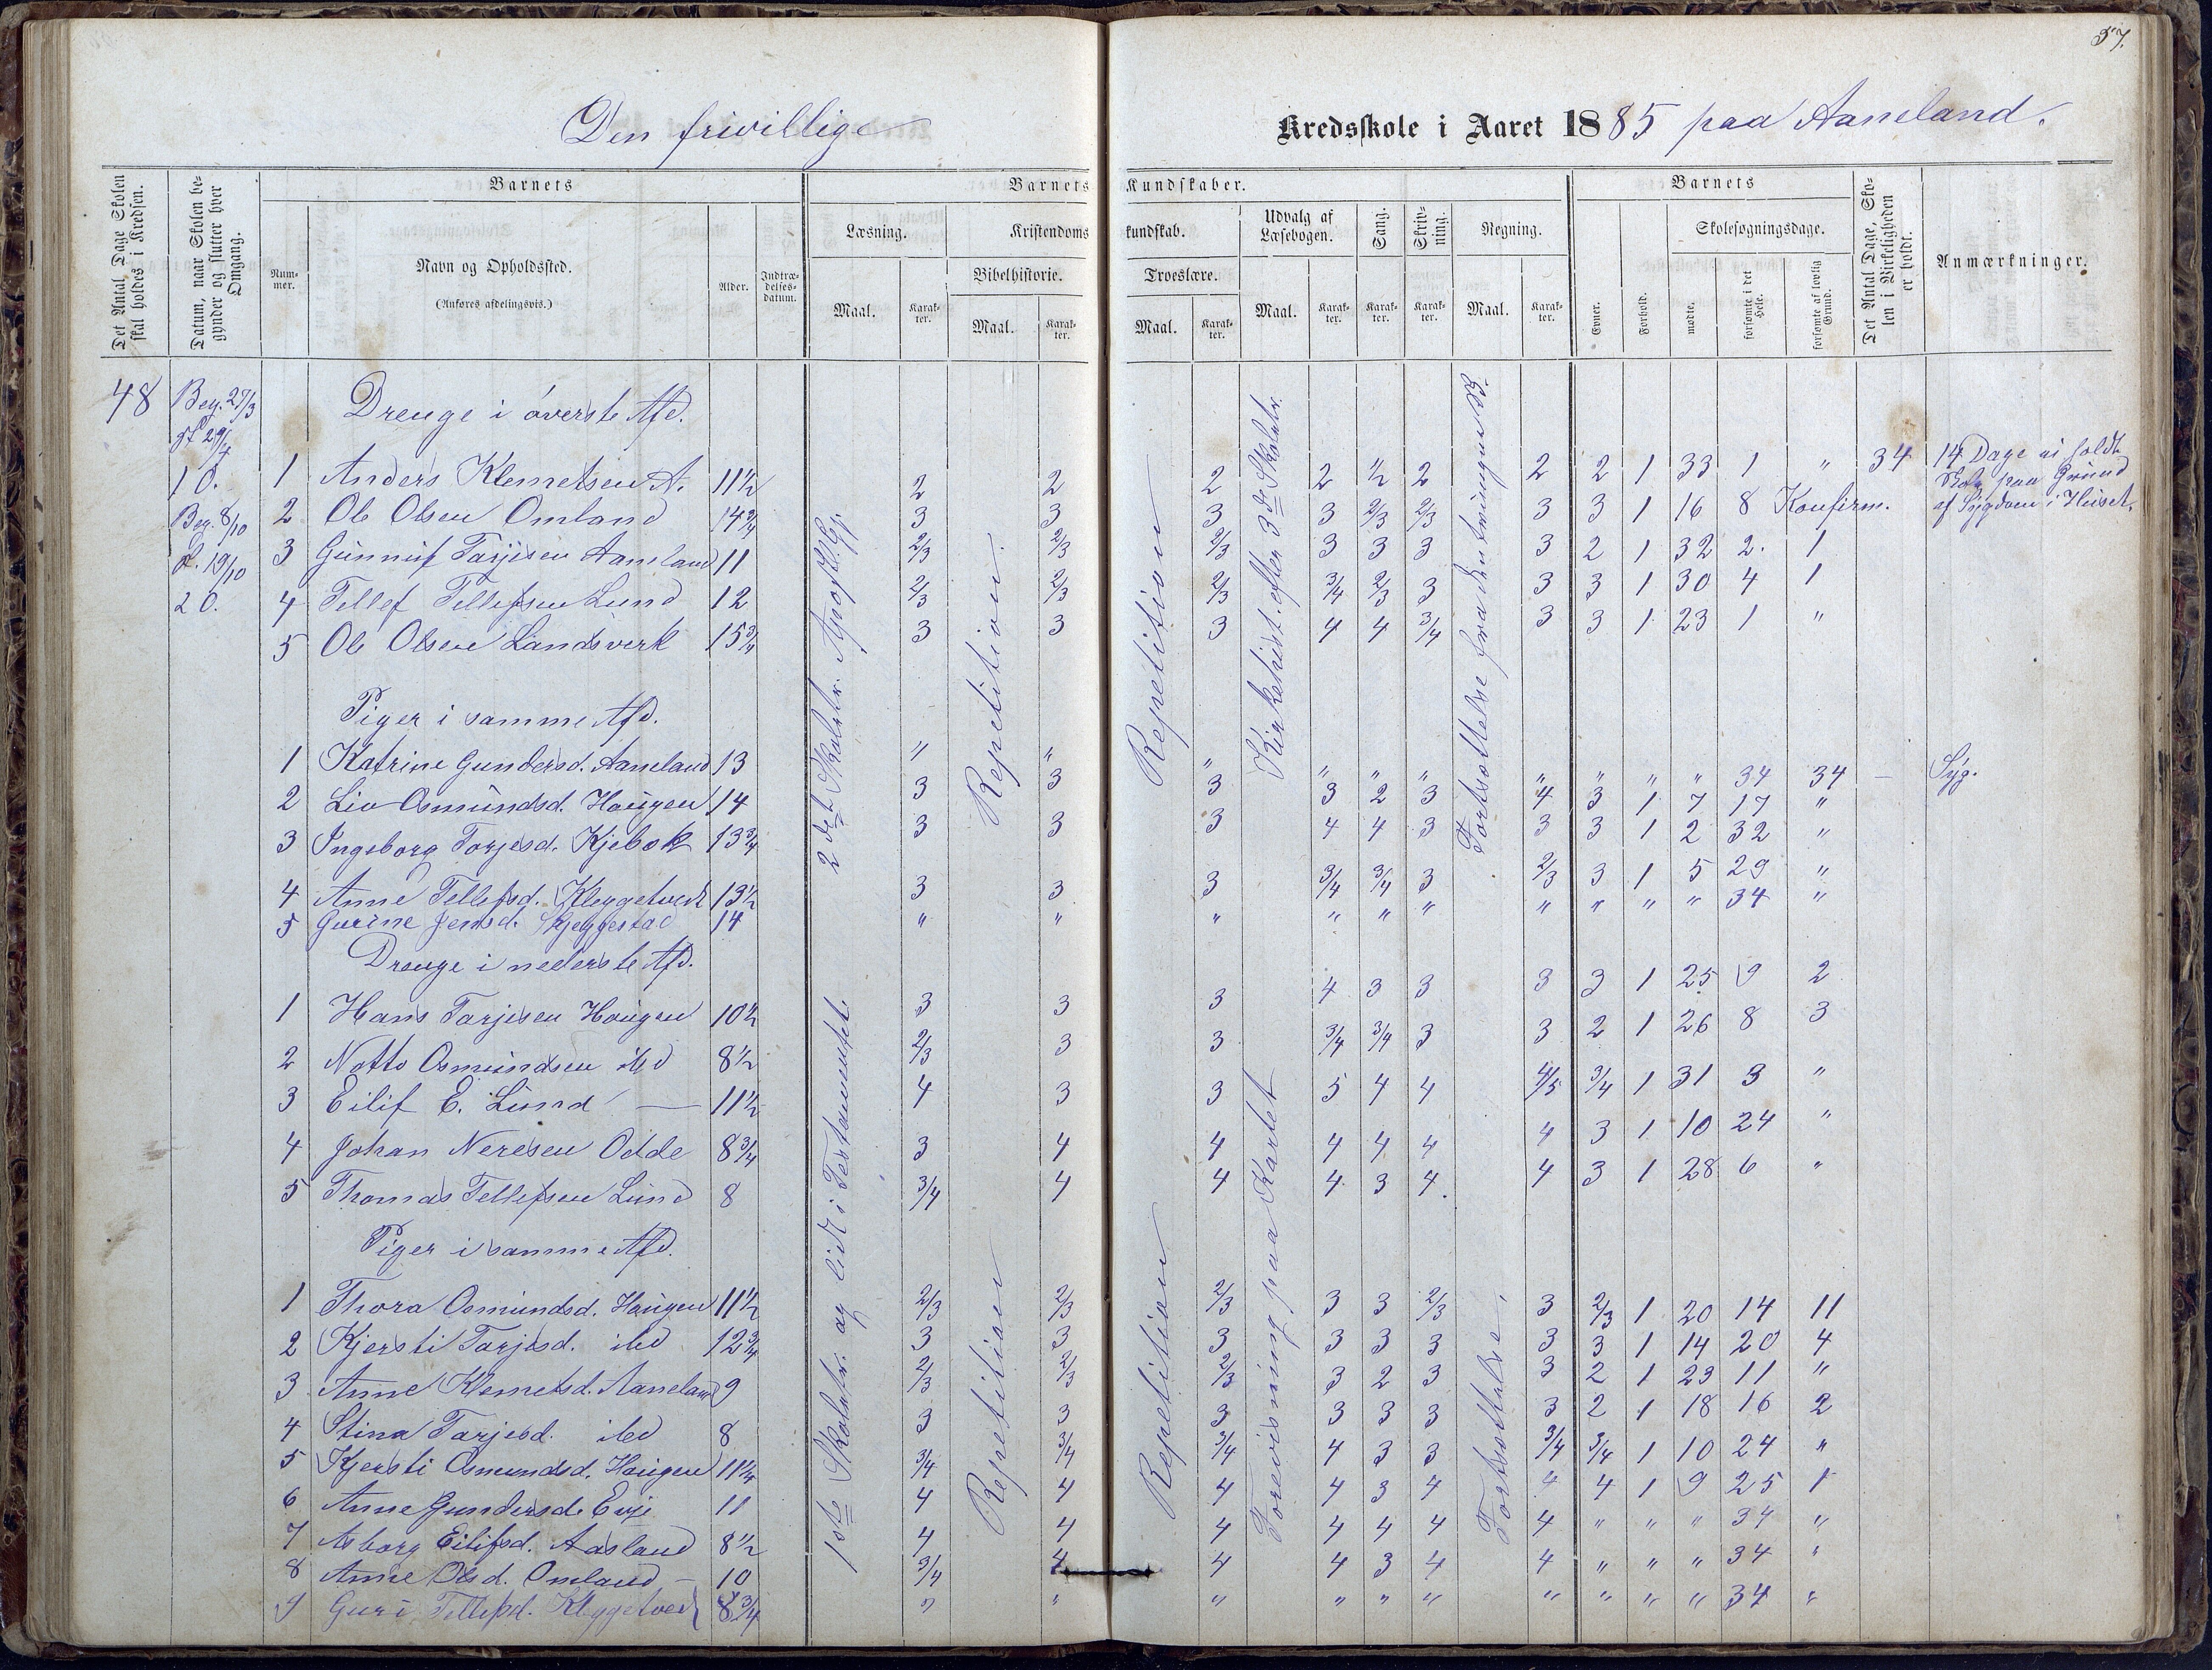 37.
Den frivillige Kredsskole i Aaret 1885 paa Aaneland.
Det Antal Dage Skolen skal holdes i Kredsen.
Datum, naar Skolen begynder og slutter hver Omgang.
Barnets
Nummer.
Navn og Opholdssted.
(Anføres afdelingsvis.)
Alder.
Indtrædelsesdatum.
Barnets Kundskaber.
Læsning.
Maal.
Karakter.
Kristendomskundskab.
Bibelhistorie.
Maal.
Karakter.
Troeslære.
Maal.
Karakter.
Udvalg af Læsebogen.
Maal.
Karakter.
Sang.
Karakter.
Skrivning.
Karakter.
Regning.
Maal.
Karakter.
Barnets
Evner.
Forhold.
Skolesøgningsdage.
mødte.
forsømte i det Hele.
forsømte af lovlig Grund.
Det Antal Dage, Skolen i Virkeligheden er holdt.
Anmærkninger.
48 Beg. 27/3
29/4
1 O.
Beg. 8/10
19/10
2 O.
2det Skoletr. Apostl. Gj.
Repetition.
Repetition
Kirkehist. efter 3de Skoletr.
Drenge i øverste Afd.
1 Anders Klemetsen A. 11½ 2 2 2 2 ½ 2 2 2 1 33 1 " 34 14 Dage ei holdt
Skole paa Grund
af Sygdom i Huset.
2 Ole Olsen Omland 14¾ 3 3 3 3 2/3 2/3 3 3 1 16 8 Konfirm.
3 Gunnuf Tarjesen Aaneland 11 2/3 2/3 2/3 3 3 3 3 2 1 32 2 1
4 Tellef Tellefsen Lund 12 2/3 2/3 2/3 3/4 2/3 3 3 3 1 30 4 1
5 Ole Olsen Landsverk 15¾ 3 3 3 4 4 3/4 3 3 1 23 1 "
Piger i samme Afd.
1 Katrine Gundersd. Aaneland 13 " " " " " " " " " " 34 34 – Syg.
2 Liv Osmundsd. Haugen 14 3 3 3 3 2 3 4 3 1 7 17 "
3 Ingeborg Torjesd. 13¾ 3 3 3 4 4 3 3 3 1 2 32 "
4 Anne Tellefsd. Kleggetvedt 13½ 3 3 3 3/4 3/4 3 2/3 3 1 5 29 "
5 Gurine Jensd. Skjeggestad 14 " " " " " " " " " " 34 "
1ste Skoletr. og lidt i Testamentet.
Repetition
Repetition
Forevisning paa Kartet
Fortsættelse.
Drenge i nederste Afd.
1 Hans Tarjesen Haugen 10½ 3 3 3 4 3 3 3 3 1 25 9 2
2 Notto Osmundsen ibd 8½ 2/3 3 3 3/4 3/4 3 3 2 1 26 8 3
3 Eilif E. Lund — 11½ 4 3 3 5 4 4 4/5 3/4 1 31 3 "
4 Johan Neresen Odde 8¾ 3 4 4 4 4 4 4 3 1 10 24 "
5 Thomas Tellefsen Lund 8 3/4 4 4 4 3 4 4 3 1 28 6 "
Piger i samme Afd.
1 Thora Osmundsd. Haugen 11½ 2/3 2/3 2/3 3 3 2/3 3 2/3 1 20 14 11
2 Kjersti Tarjesd. ibd 12¾ 3 3 3 3 3 3 3 3 1 14 20 4
3 Anne Klemetsd. Aaneland 9 2/3 2/3 2/3 3 2 3 3 2 1 23 11 "
4 Stina Tarjesd. ibd 8 3 3 3 3 3 3 3 2 1 18 16 2
5 Kjersti Osmundsd. Haugen 11¼ 3/4 3/4 3/4 4 3 3 3/4 3/4 1 10 24 "
6 Anne Gundersd. Evje 11 4 4 4 4 3 4 4 4 1 9 25 1
7 Asborg Eilifsd. Aasland 8½ 4 4 4 4 4 4 4 " " " 34 "
8 Anne Olsd. Omland – 10 3/4 4 4 4 3 4 4 " " " 34 "
9 Guri Tellefsd. Kleggetvedt 8¾ " " " " " " " " " " 34 "